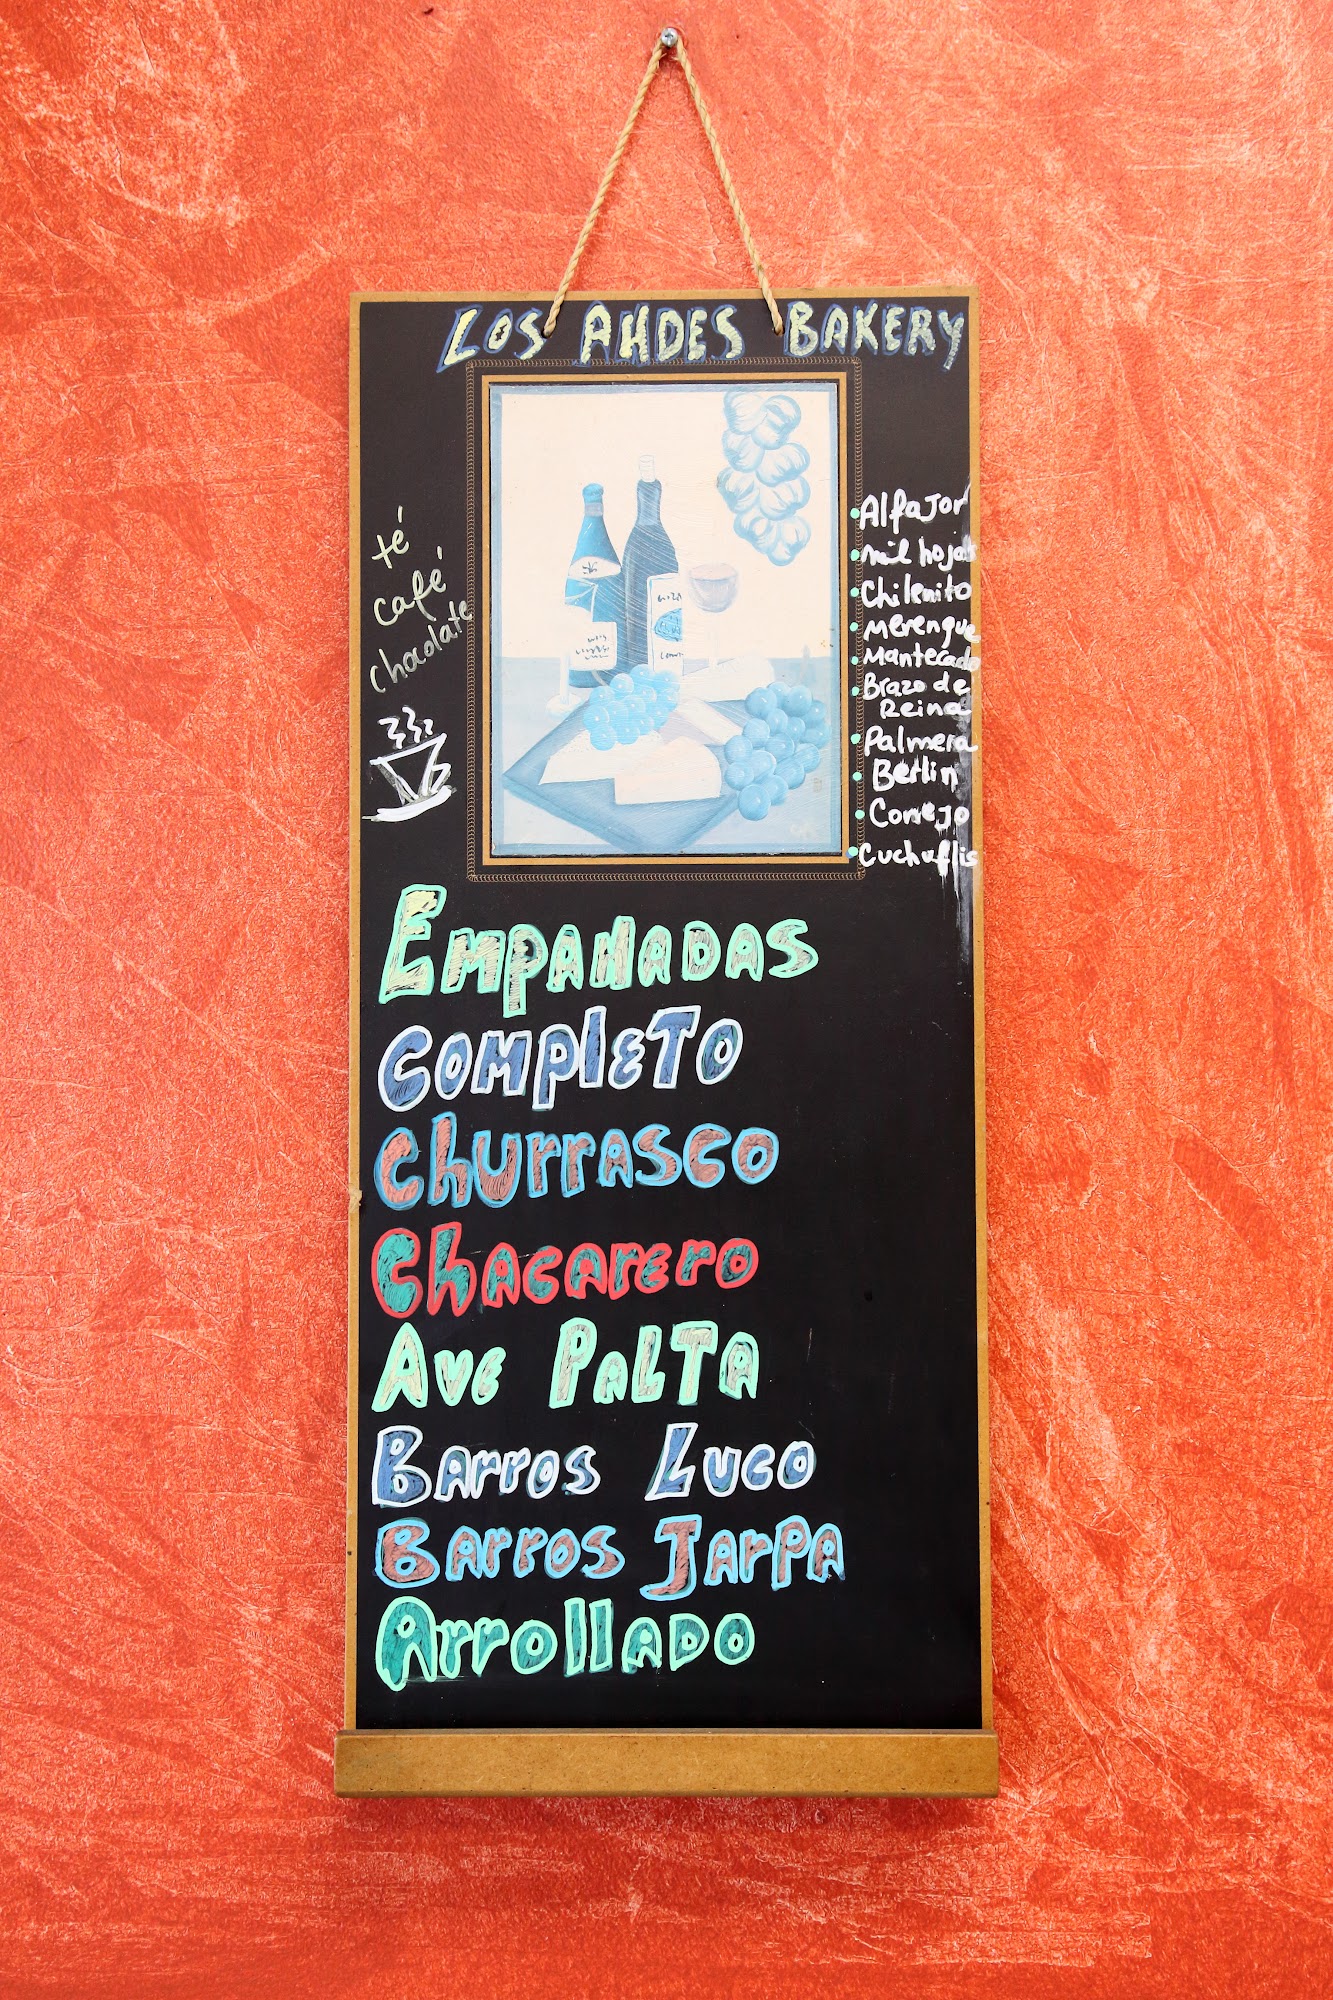 LOS ANDES BAKERY
té
café
chocolate
Alfajor
mil hojas
Chilenito
Merengue
Mantecado
Brazo de
Reina
Palmera
Berlin
Conejo
Cuchuflis
EMPANADAS
COMPLETO
CHURRASCO
CHACARERO
AVE PALTA
BARROS LUCO
BARROS JARPA
ARROLLADO